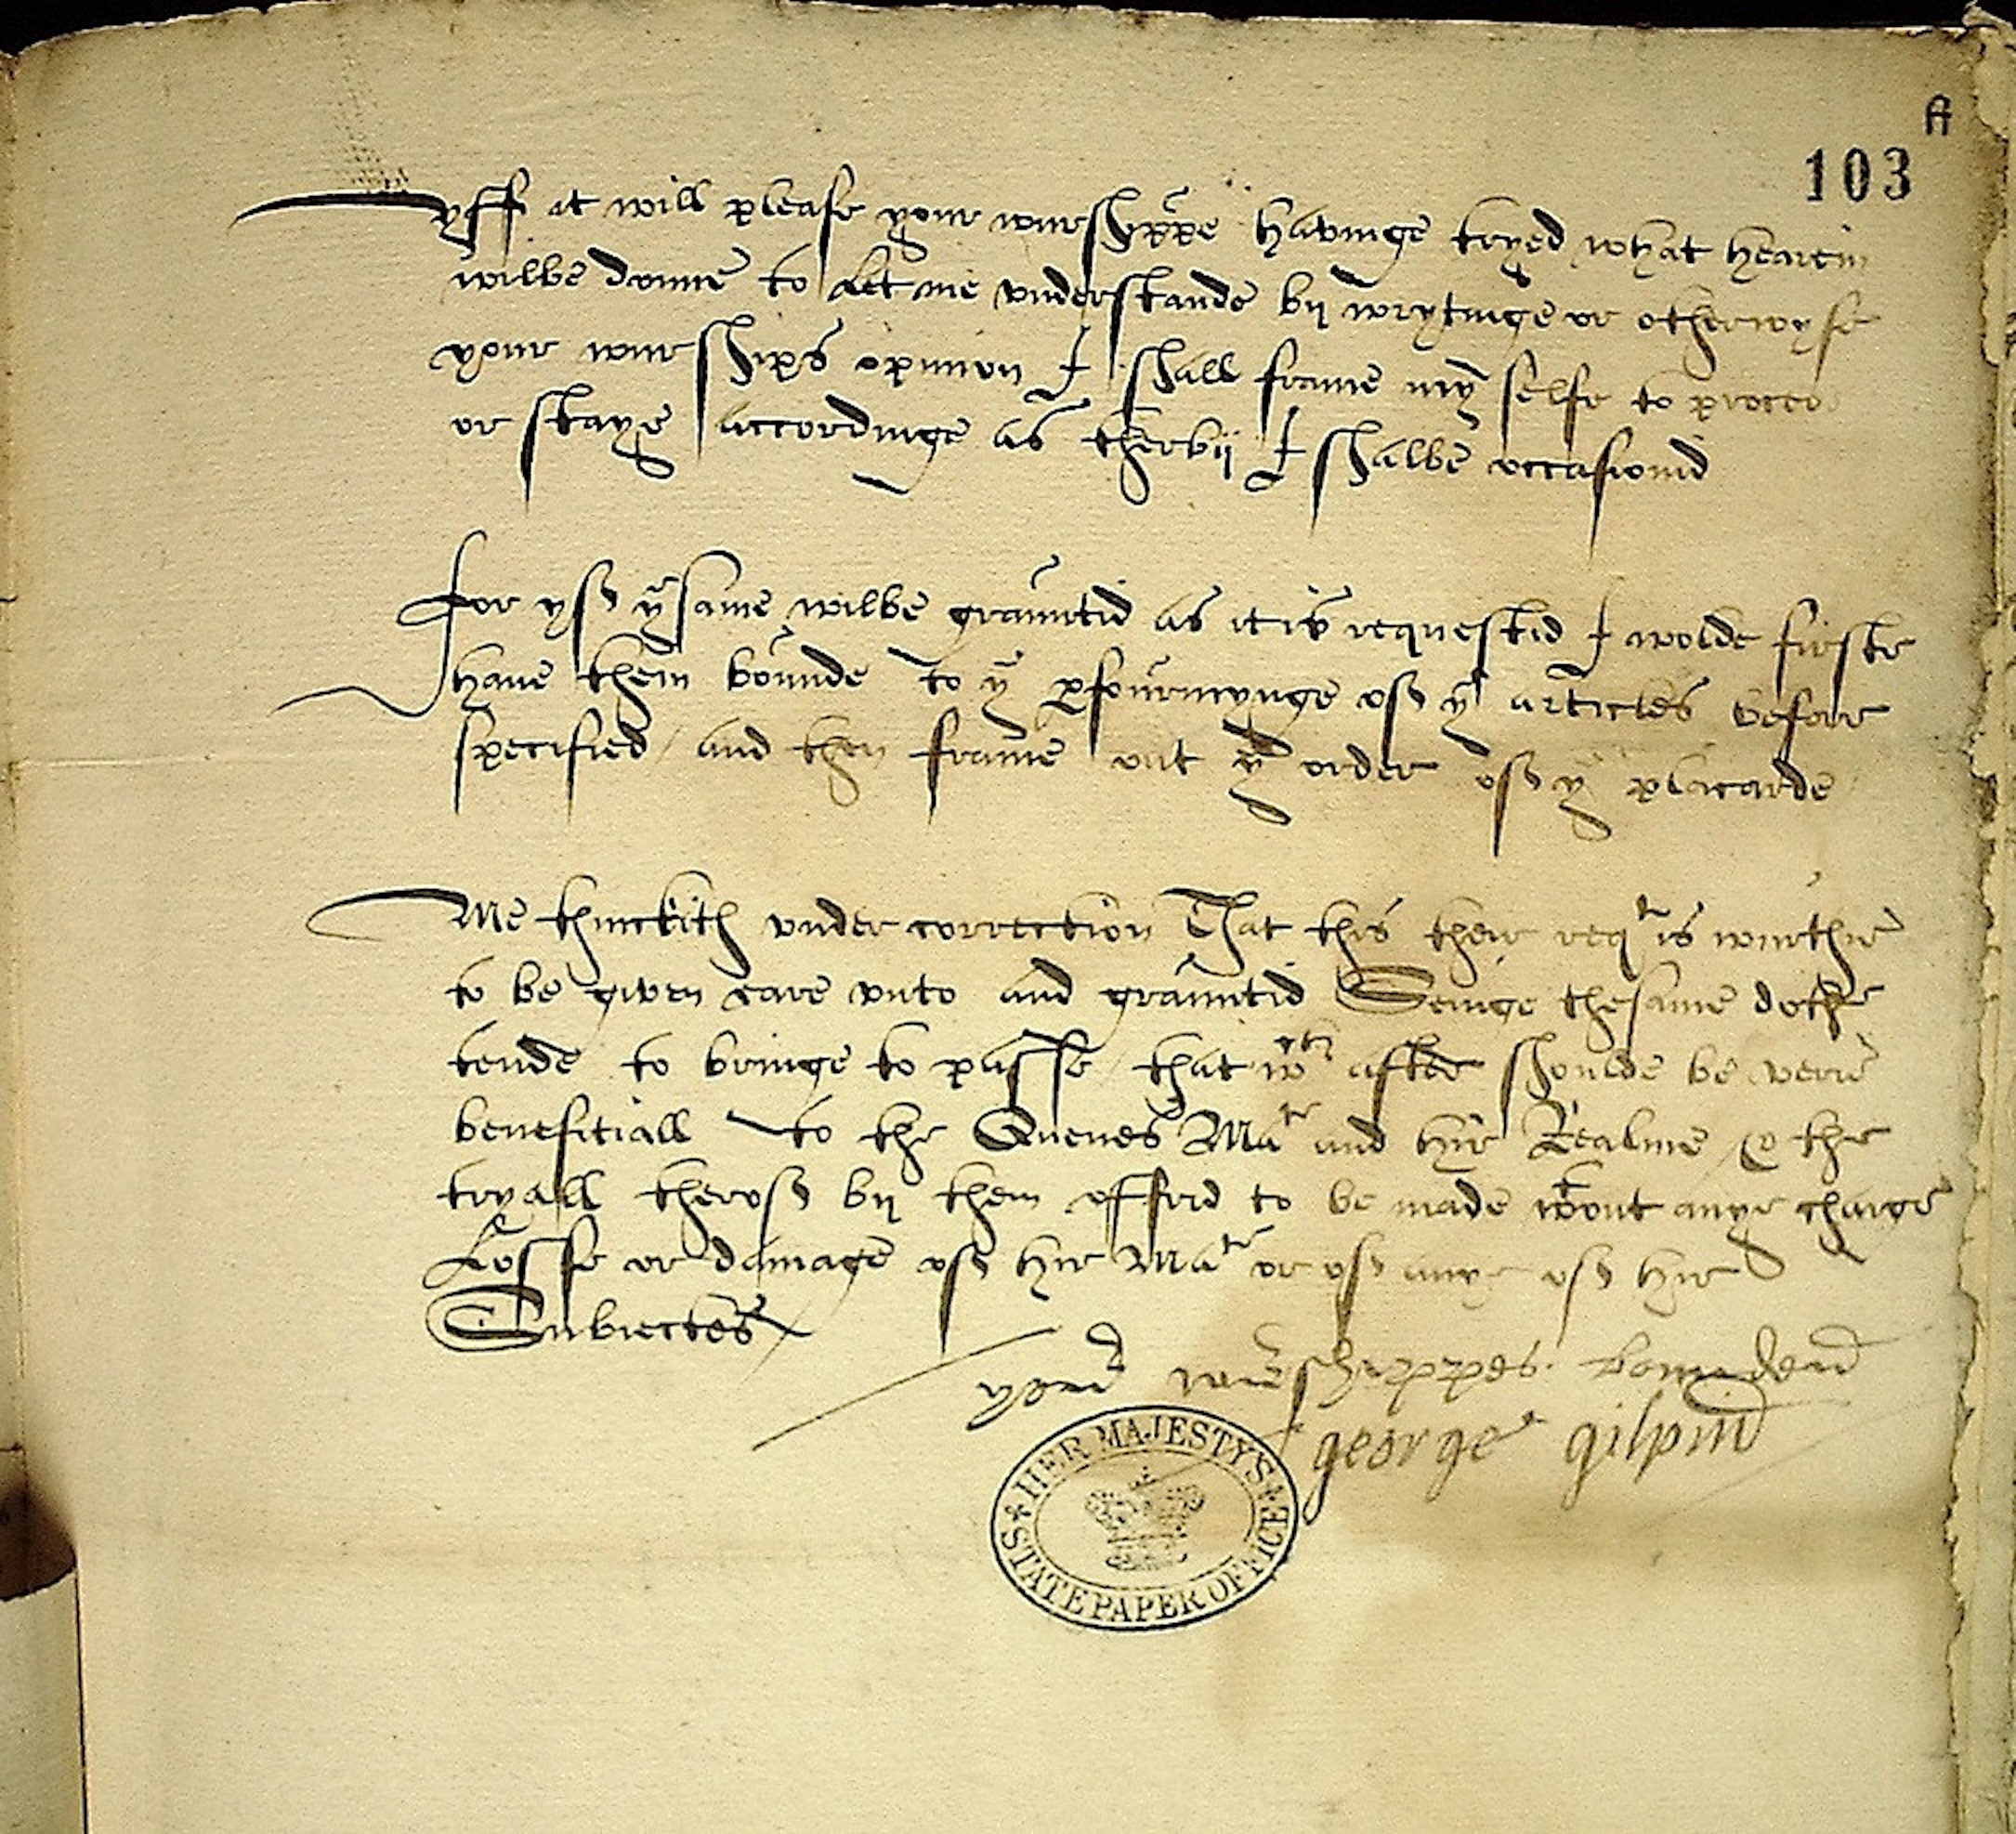 A
103
yff it will please your wurshippe havinge tryed what hearein
wilbe donne to let me understande bij wrytinge or otherwyse
your wurships opinion I shall frame my selfe to procee
or staye accordinge as therbij I shalbe occasionid
For yf yᵉ same wilbe grauntid as it is requestid I wolde firste
have them bounde to yᵉ pfourmynge of yᵉ articles before
specified / and then frame out yᵉ order of yᵉ placarde
Me thinckith under correction That this their reqᵗ is wurthie
to be given eare unto and grauntid Seinge the same dothe
tende to bringe to passe / that wᶜʰ after shoulde be verie
benefitiall to the Quenes Maᵗⁱᵉ and hir Realme / & the
tryall therof bij them offrid to be made wᵗout anye charge
Losse or damage of hir Maᵗⁱᵉ or of anye of hir
Subiectes
your wurshippes
george gilpin
HER MAJESTY'S
STATE PAPER OFFICE